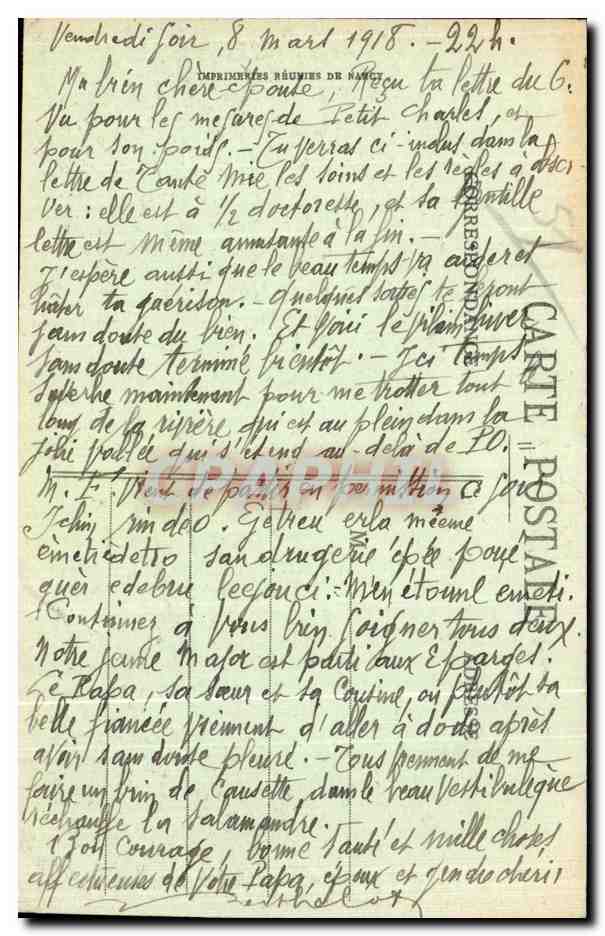 Vendredi soir, 8 Mars 1918. - 22h.
IMPRIMERIES RÉUNIES DE NANCY
Ma bien chère épouse, Reçu ta lettre du 6.
Vu pour les mesures de Petit Charles, et
pour son poids. - Tu verras ci-inclus dans la
lettre de Tante Mie les soins et les règles à obser-
ver : elle est à 1/2 doctoresse, et sa gentille
lettre est même amusante à la fin. -
J'espère aussi que le beau temps va aider et
hâter ta guérison. - Quelques sorties te feront
sans doute du bien. Et voici le vilain hiver
sans doute terminé bientôt. - Ici temps
superbe maintenant pour me trotter tout le
long de la rivière qui est au plein dans la
jolie vallée qui s'étend au-delà de P.O.
M. F. Vient de partir en permission ce soir
la méeme
san drugerie
M'en étonne
Continuez à vous bien soigner tous deux.
Notre jeune Major est parti aux Eparges.
Le Papa, sa sœur et sa Cousine, ou plutôt sa
belle fiancée viennent d'aller à dodo après
avoir sans doute pleuré. - Tous viennent de me
faire un brin de Causette dans le beau Vestibule que
réchauffe la Salamandre.
Bon Courage, bonne santé et mille choses
affectueuses de Votre Papa, époux et gendre chéri
CARTE POSTALE
CORRESPONDANCE
ADRESSE